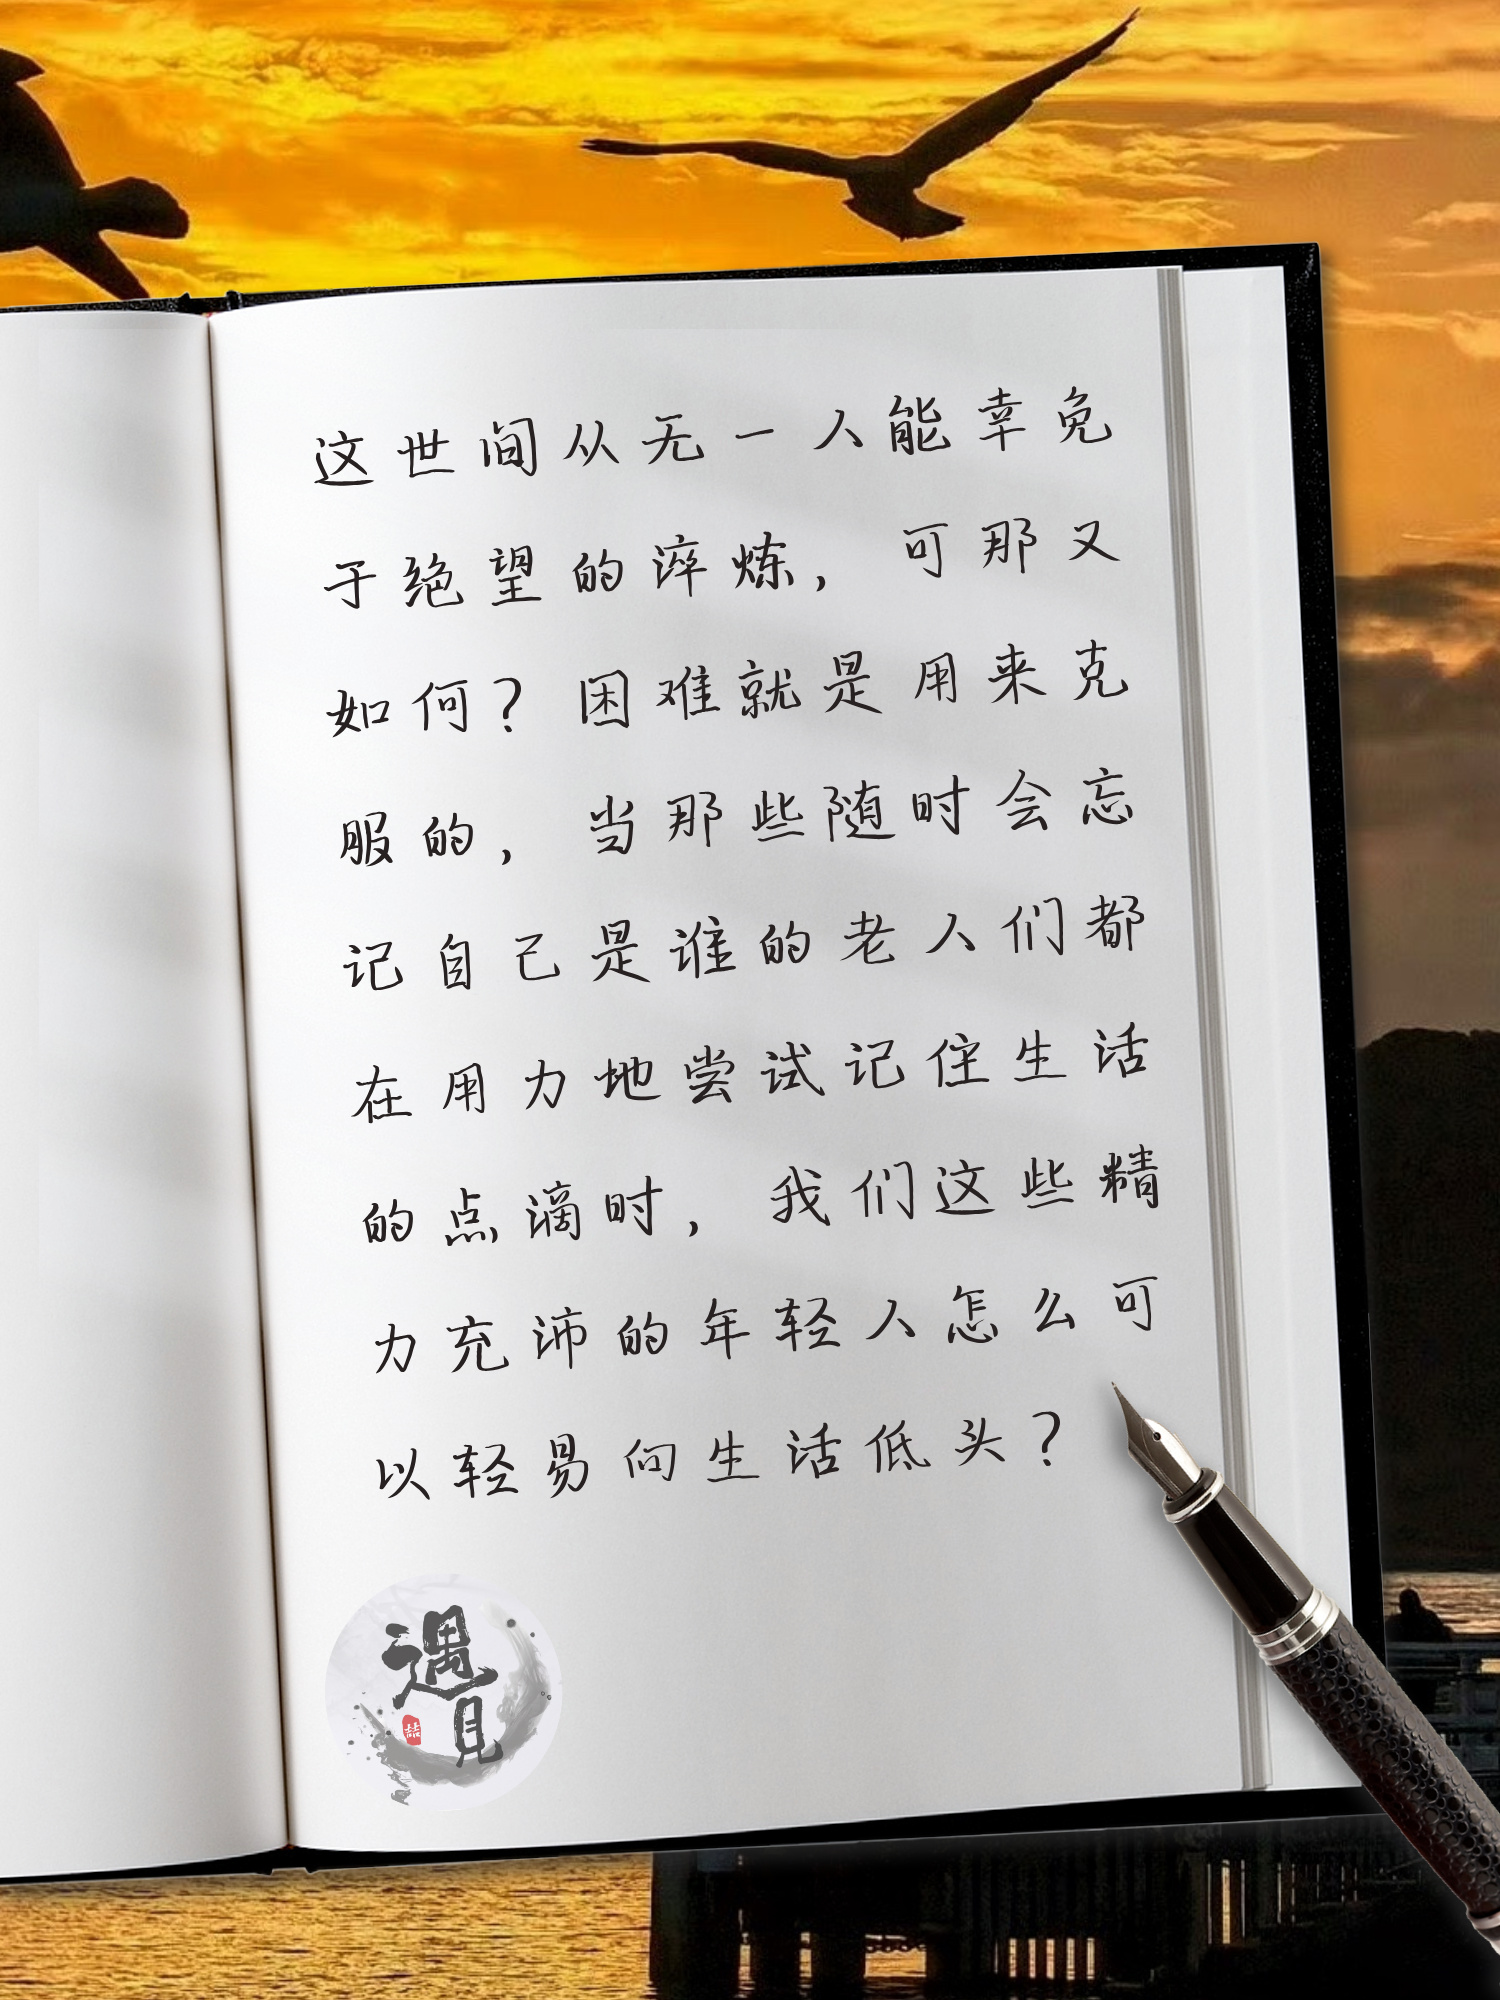 这世间从无一人能幸免
于绝望的淬炼，可那又
如何？困难就是用来克
服的，当那些随时会忘
记自己是谁的老人们都
在用力地尝试记住生活
的点滴时，我们这些精
力充沛的年轻人怎么可
以轻易向生活低头？
遇见
喆